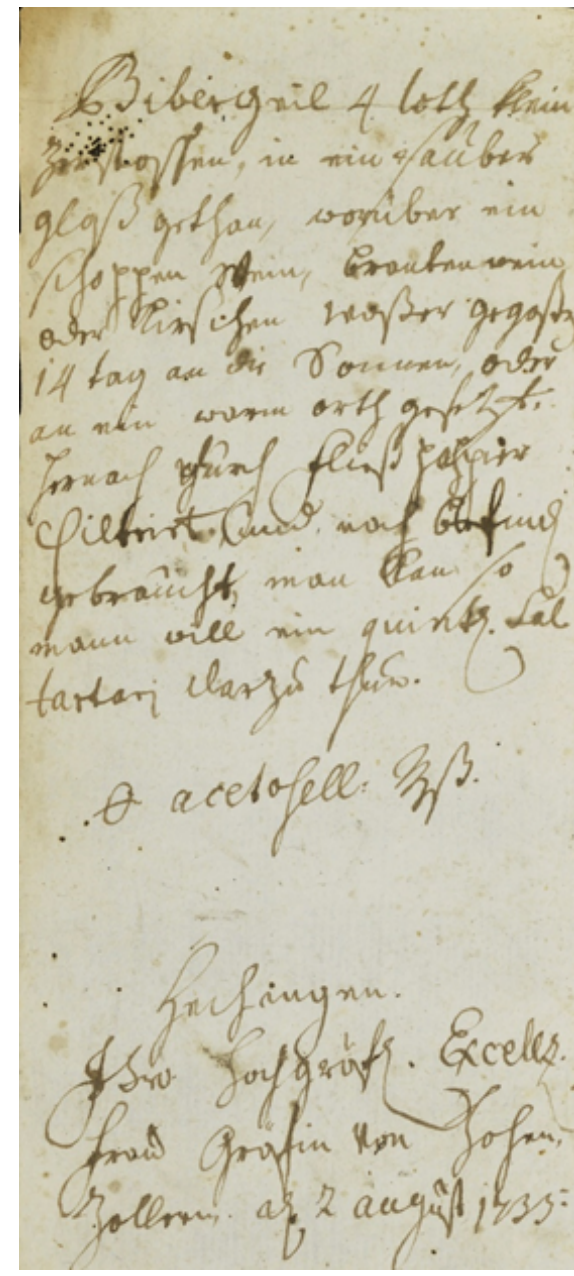 Bibergeil 4 loth klein
zerstossen, in ein saubers
glaß gethan, worüber ein
schoppen Wein, brantenwein
oder Kirschen waßer gegoßen
14 tag an die Sonnen, oder
an ein warm orth gesetzt,
hernach durch fließ pappier
filtrirt, und nach befind
gebraucht, man kan so
mann will ein quintl. Sal
tartari darzu thun.
acetosell: ß.
Hechingen.
Ihro Hochgräfl. Excellz.
Frau Gräfin von Hohen,
Zollern. 2 august 1735